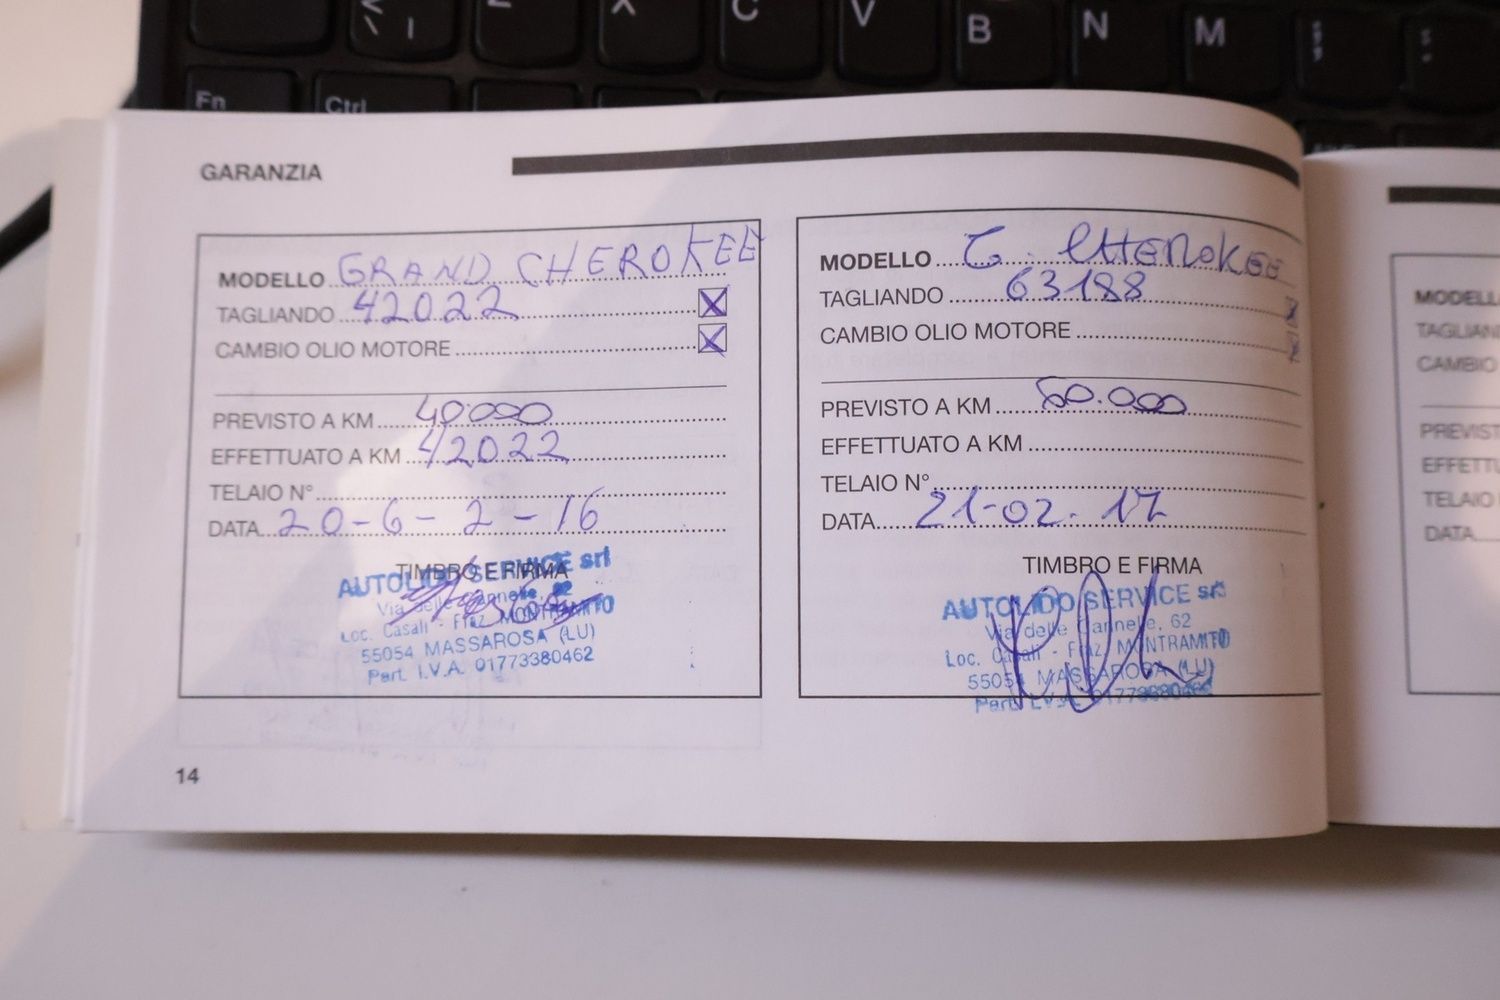 Z X C V B N M
Fn Ctrl
GARANZIA
MODELLO GRAND CHEROKEE
TAGLIANDO 42022 X
CAMBIO OLIO MOTORE X
PREVISTO A KM 40.000
EFFETTUATO A KM 42022
TELAIO N°
DATA 20-6-2-16
TIMBRO E FIRMA
AUTOLIDO SERVICE srl
Via delle Cannelle, 62
Loc. Casali - Fraz. MONTRAMITO
55054 MASSAROSA (LU)
Part. I.V.A. 01773380462
14
MODELLO G. CHEROKEE
TAGLIANDO 63188 X
CAMBIO OLIO MOTORE X
PREVISTO A KM 60.000
EFFETTUATO A KM
TELAIO N°
DATA 21-02-17
TIMBRO E FIRMA
AUTOLIDO SERVICE srl
Via delle Cannelle, 62
Loc. Casali - Fraz. MONTRAMITO
55054 MASSAROSA (LU)
Part. I.V.A. 01773380462
MODELL
TAGLIAN
CAMBIO
PREVIST
EFFETTU
TELAIO
DATA